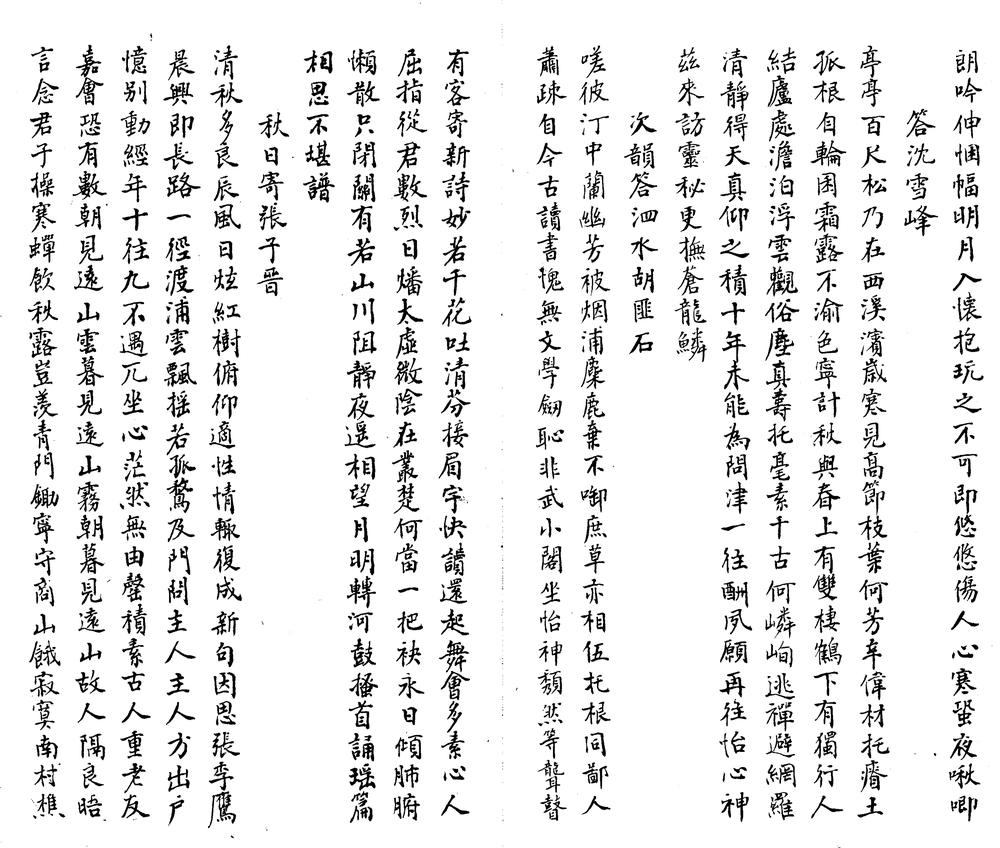 朗吟伸悃愊明月入懷抱玩之不可即悠悠傷人心寒蛩夜啾唧
答沈雪峰
亭亭百尺松乃在西溪濱歲寒見高節枝葉何芳辛偉材托瘠土
孤根自輪囷霜露不渝色寧計秋與春上有雙棲鶴下有獨行人
結廬處澹泊浮雲觀俗塵真壽托毫素千古何嶙峋逃禪避網羅
清靜得天真仰之積十年未能為問津一往酬夙願再往怡心神
茲來訪靈秘更撫蒼龍鱗
次韻答泗水胡匪石
嗟彼汀中蘭幽芳被烟浦麋鹿棄不啣庶草亦相伍托根同鄙人
蕭疎自今古讀書愧無文學劍恥非武小閣坐怡神頹然等聾瞽
有客寄新詩妙若千花吐清芬接眉宇快讀還起舞會多素心人
屈指從君數烈日燔太虛微陰在叢楚何當一把袂永日傾肺腑
懶散只閉關有若山川阻靜夜遥相望月明轉河鼓搔首誦瑶篇
相思不堪譜
秋日寄張子晉
清秋多良辰風日炫紅樹俯仰適性情輒復成新句因思張季鷹
晨興即長路一徑渡浦雲飄摇若孤鶩及門問主人主人方出戶
憶别動經年十往九不遇兀坐心茫然無由罄積素古人重老友
嘉會恐有數朝見遠山雲暮見遠山霧朝暮見遠山故人隔良晤
言念君子操寒蟬飲秋露豈羨青門鋤寧守商山餓寂寞南村樵